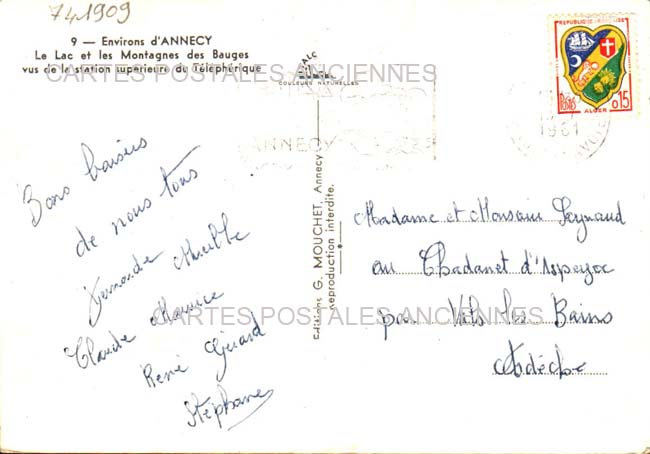 741909
9 — Environs d'ANNECY
Le Lac et les Montagnes des Bauges
vus de la station supérieure du Téléphérique
CARTES POSTALES ANCIENNES
COULEURS NATURELLES
REPUBLIQUE FRANÇAISE
POSTES
0,15
ALGER
1961
ANNECY
Editions G. MOUCHET, Annecy
reproduction interdite.
Bons baisers
de nous tous
Fernande
Claude Maurice
René Gérard
Stéphane
Madame et Monsieur
au
par Vals les Bains
Ardèche
CARTES POSTALES ANCIENNES